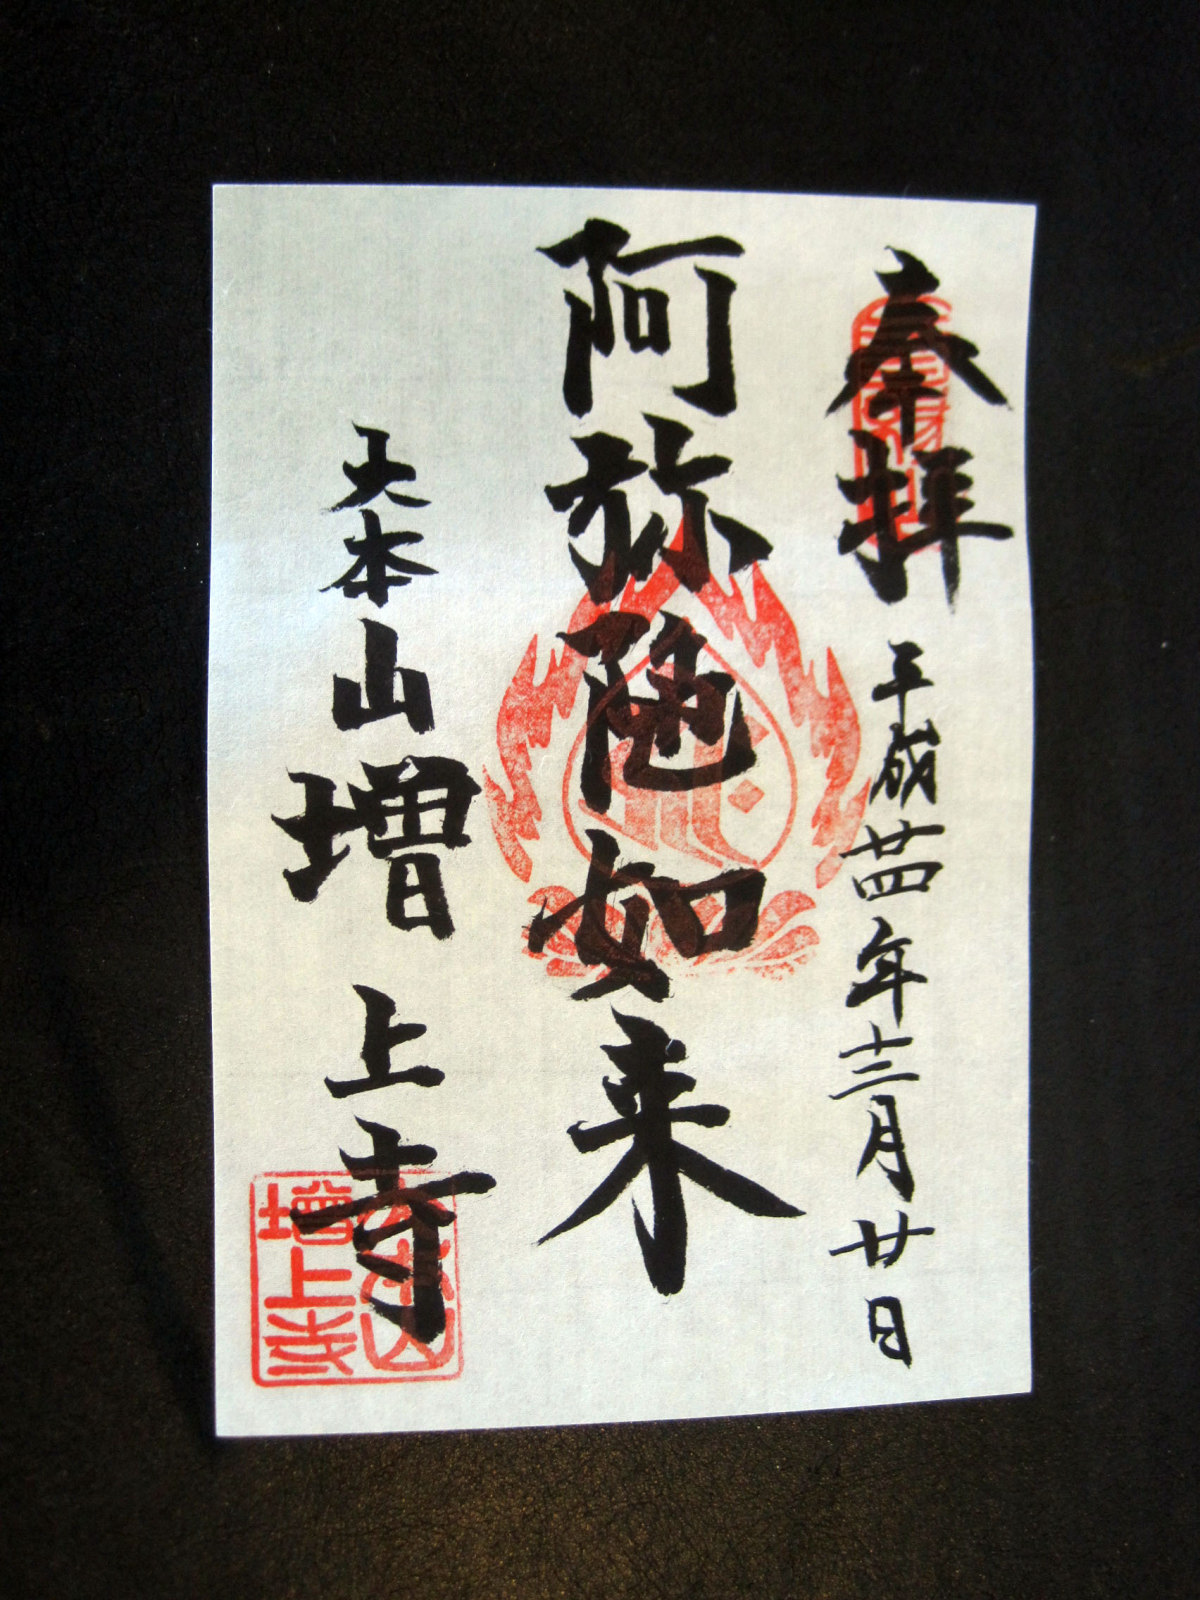 奉拝 平成廿四年十二月廿日
阿弥陁如来
大本山増上寺
大本山
増上寺